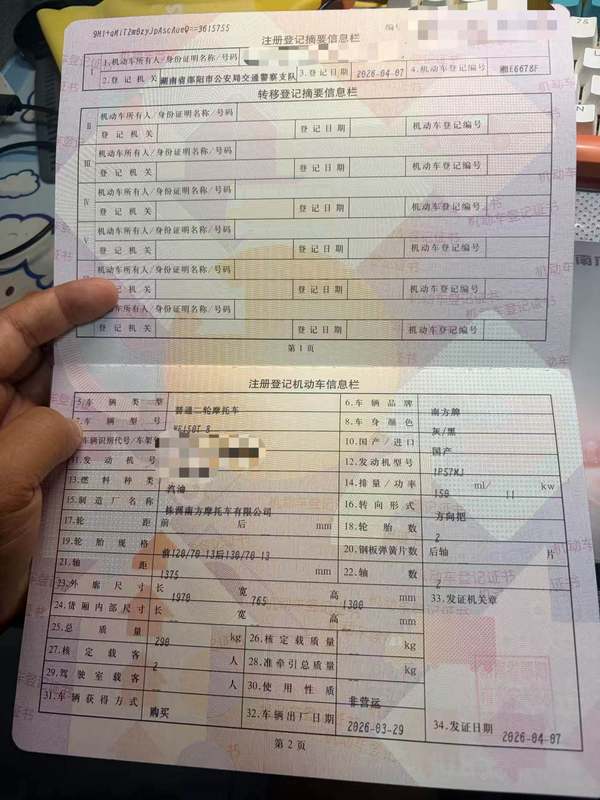 9H1+qMiT2mBzyJpAscAueQ==3615755
注册登记摘要信息栏
1.机动车所有人/身份证明名称/号码
2.登记机关 湖南省邵阳市公安局交通警察支队 3.登记日期 2026-04-07 4.机动车登记编号 湘E6678F
转移登记摘要信息栏
II 机动车所有人/身份证明名称/号码
登记机关 登记日期 机动车登记编号
III 机动车所有人/身份证明名称/号码
登记机关 登记日期 机动车登记编号
IV 机动车所有人/身份证明名称/号码
登记机关 登记日期 机动车登记编号
V 机动车所有人/身份证明名称/号码
登记机关 登记日期 机动车登记编号
机动车所有人/身份证明名称/号码
登记机关 登记日期 机动车登记编号
机动车所有人/身份证明名称/号码
登记机关 登记日期 机动车登记编号
第1页
注册登记机动车信息栏
5.车辆类型 普通二轮摩托车 6.车辆品牌 南方牌
7.车辆型号 8.车身颜色 灰/黑
车辆识别代号/车架 10.国产/进口 国产
11.发动机号 12.发动机型号 1P57MJ
13.燃料种类 汽油 14.排量/功率 150 ml/ kw
15.制造厂名称 株洲南方摩托车有限公司 16.转向形式 方向把
17.轮距 前 后 mm 18.轮胎数 2
19.轮胎规格 前120/70-13后130/70-13 20.钢板弹簧片数 后轴 片
21.轴距 1375 mm 22.轴数 2
23.外廓尺寸 长 1970 宽 765 高 1300 mm 33.发证机关章
24.货厢内部尺寸 长 宽 高 mm
25.总质量 290 kg 26.核定载质量 kg
27.核定载客 2 人 28.准牵引总质量 kg
29.驾驶室载客 人 30.使用性质 非营运
31.车辆获得方式 购买 32.车辆出厂日期 2026-03-29 34.发证日期 2026-04-07
第2页